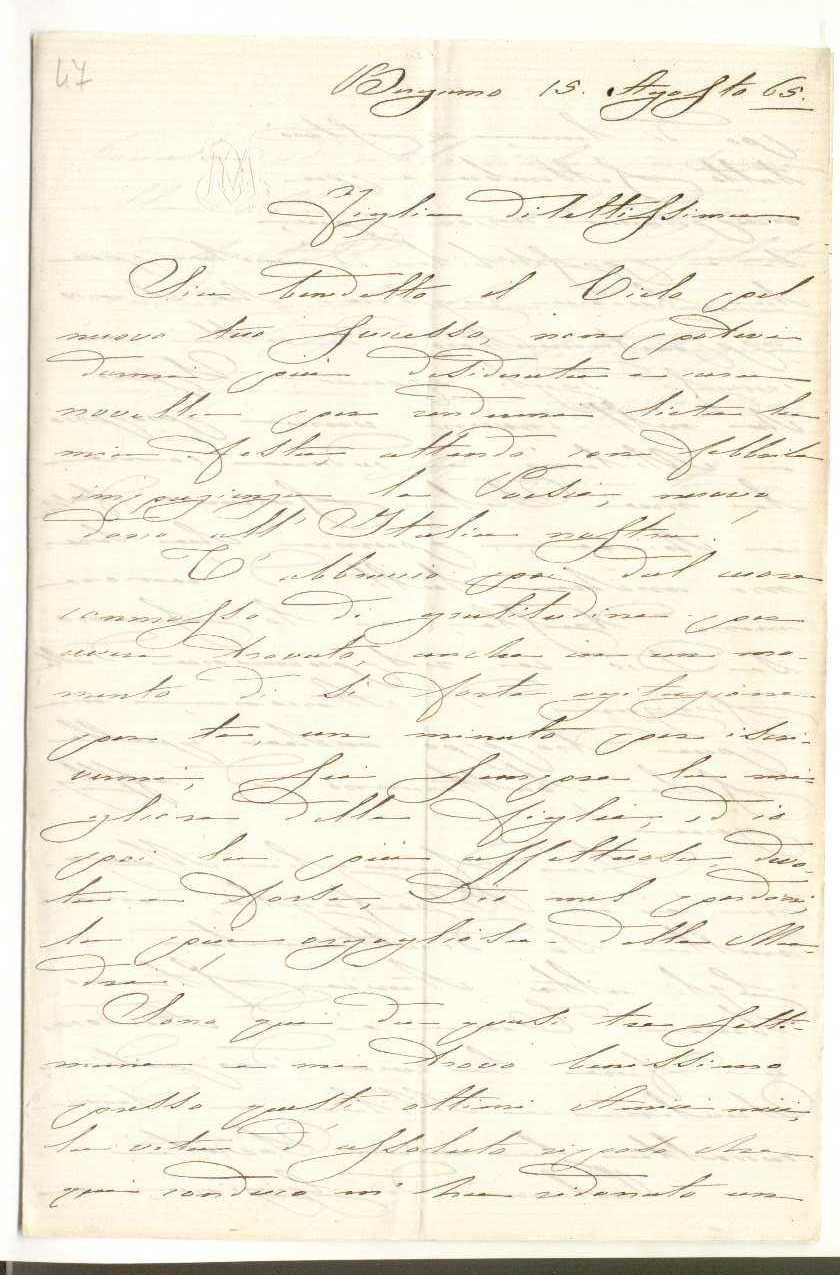 47
Bergamo 15. Agosto 65.
M
Figlia dilettissima.
Sia benedetto il Cielo pel
nuovo tuo successo, non potevi
darmi più desiderata e cara
novella per rendermi lieta la
mia festa, attendo con febbrile
impazienza la Poesia, nuova
gloria all'Italia nostra.
T'abbraccio poi dal cuore
commosso di gratitudine per
avere trovato, anche in un mo-
mento di sì forte agitazione
per te, un minuto per iscri-
vermi, Sei sempre la mi-
gliore delle figlie, ed io
poi la più affettuosa, devo-
ta e forse, Dio mel perdoni,
la più orgogliosa delle Ma-
dri.
Sono qui da quasi tre setti-
mane e mi trovo benissimo
presso questi ottimi Amici miei,
la vita d'assoluto riposo che
qui conduco m'ha ridonato un